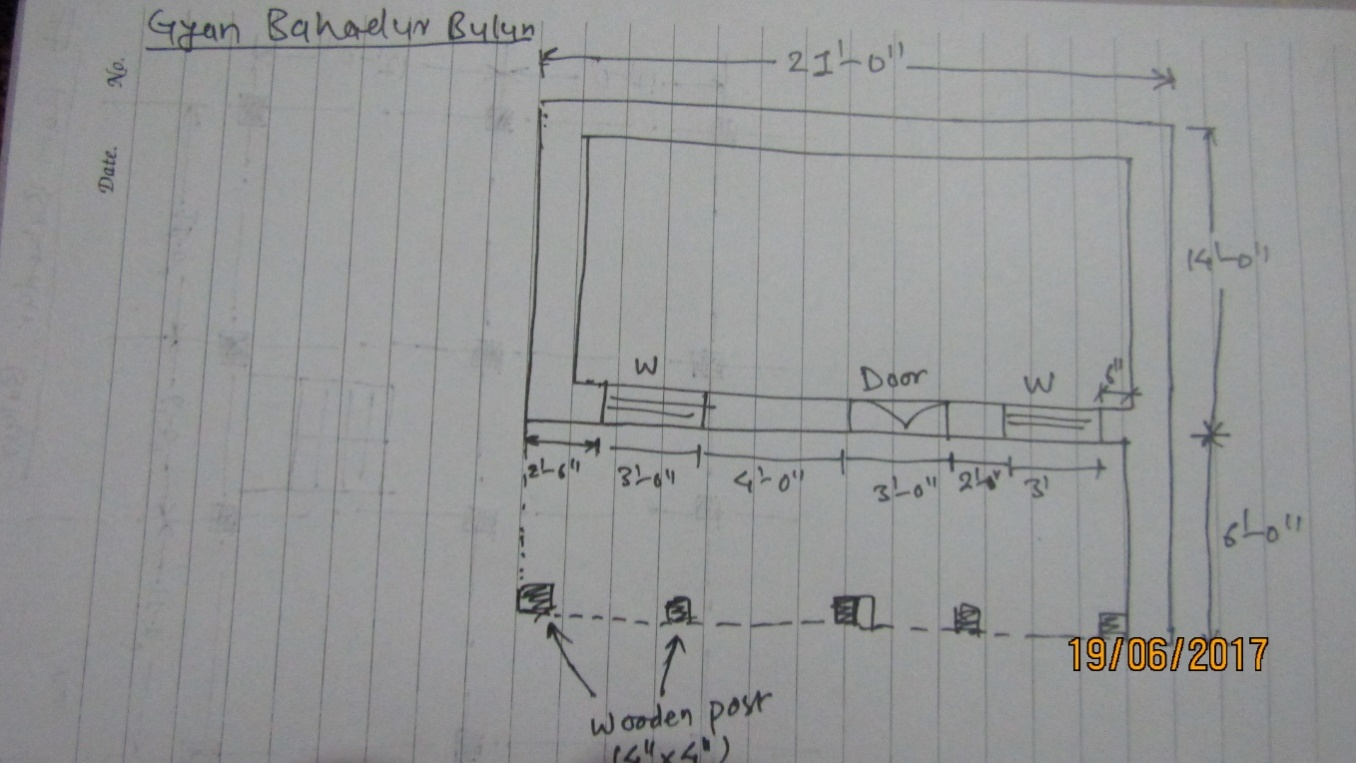 Gyan Bahadur Bulun
No.
Date.
21'-0"
14'-0"
W
Door
W
6"
2'-6"
3'-0"
4'-0"
3'-0"
2'-0"
3'
6'-0"
Wooden post
(4"x4")
19/06/2017